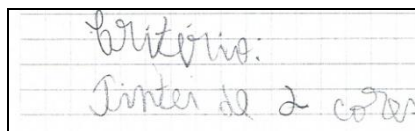 Critério:
Pintei de 2 cores